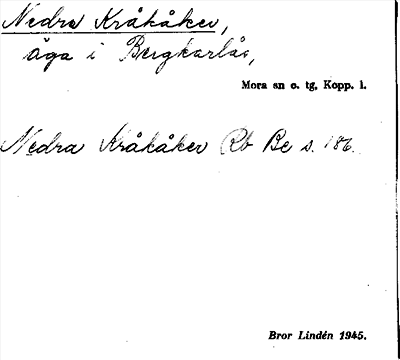 Nedra Kråkåker,
äga i Bergkarlås,
Mora sn o. tg, Kopp. l.
Nedra Kråkåker Rb Be s. 186.
Bror Lindén 1945.